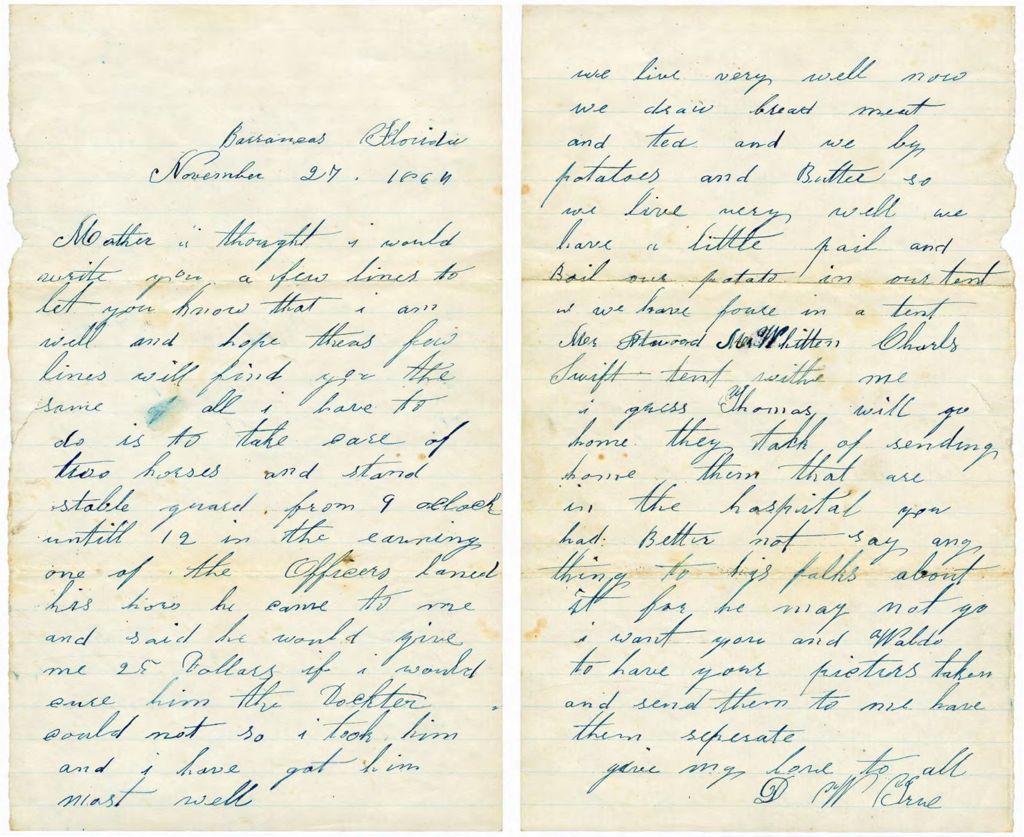 Barrancas Florida
November 27. 1864
Mother i thought i would
write you a few lines to
let you know that i am
well and hope theas few
lines will find you the
same all i have to
do is to take care of
two horses and stand
stable guard from 9 oclock
untill 12 in the earning
one of the Officers laned
his hors he came to me
and said he would give
me 25 Dollars if i would
cure him the Dockter
could not so i took him
and i have got him
most well
we live very well now
we draw bread meat
and tea and we by
potatoes and Butter so
we live very well we
have a little pail and
Boil our potato in our tent
we have foure in a tent
Mr Atwood Mr Whitten Charls
Swift tent withe me
i guess Thomas will go
home they talk of sending
home them that are
in the hospital you
had Better not say any
thing to his folks about
it for he may not go
i want you and Waldo
to have your picters taken
and send them to me have
them seperate
give my love to all
D W